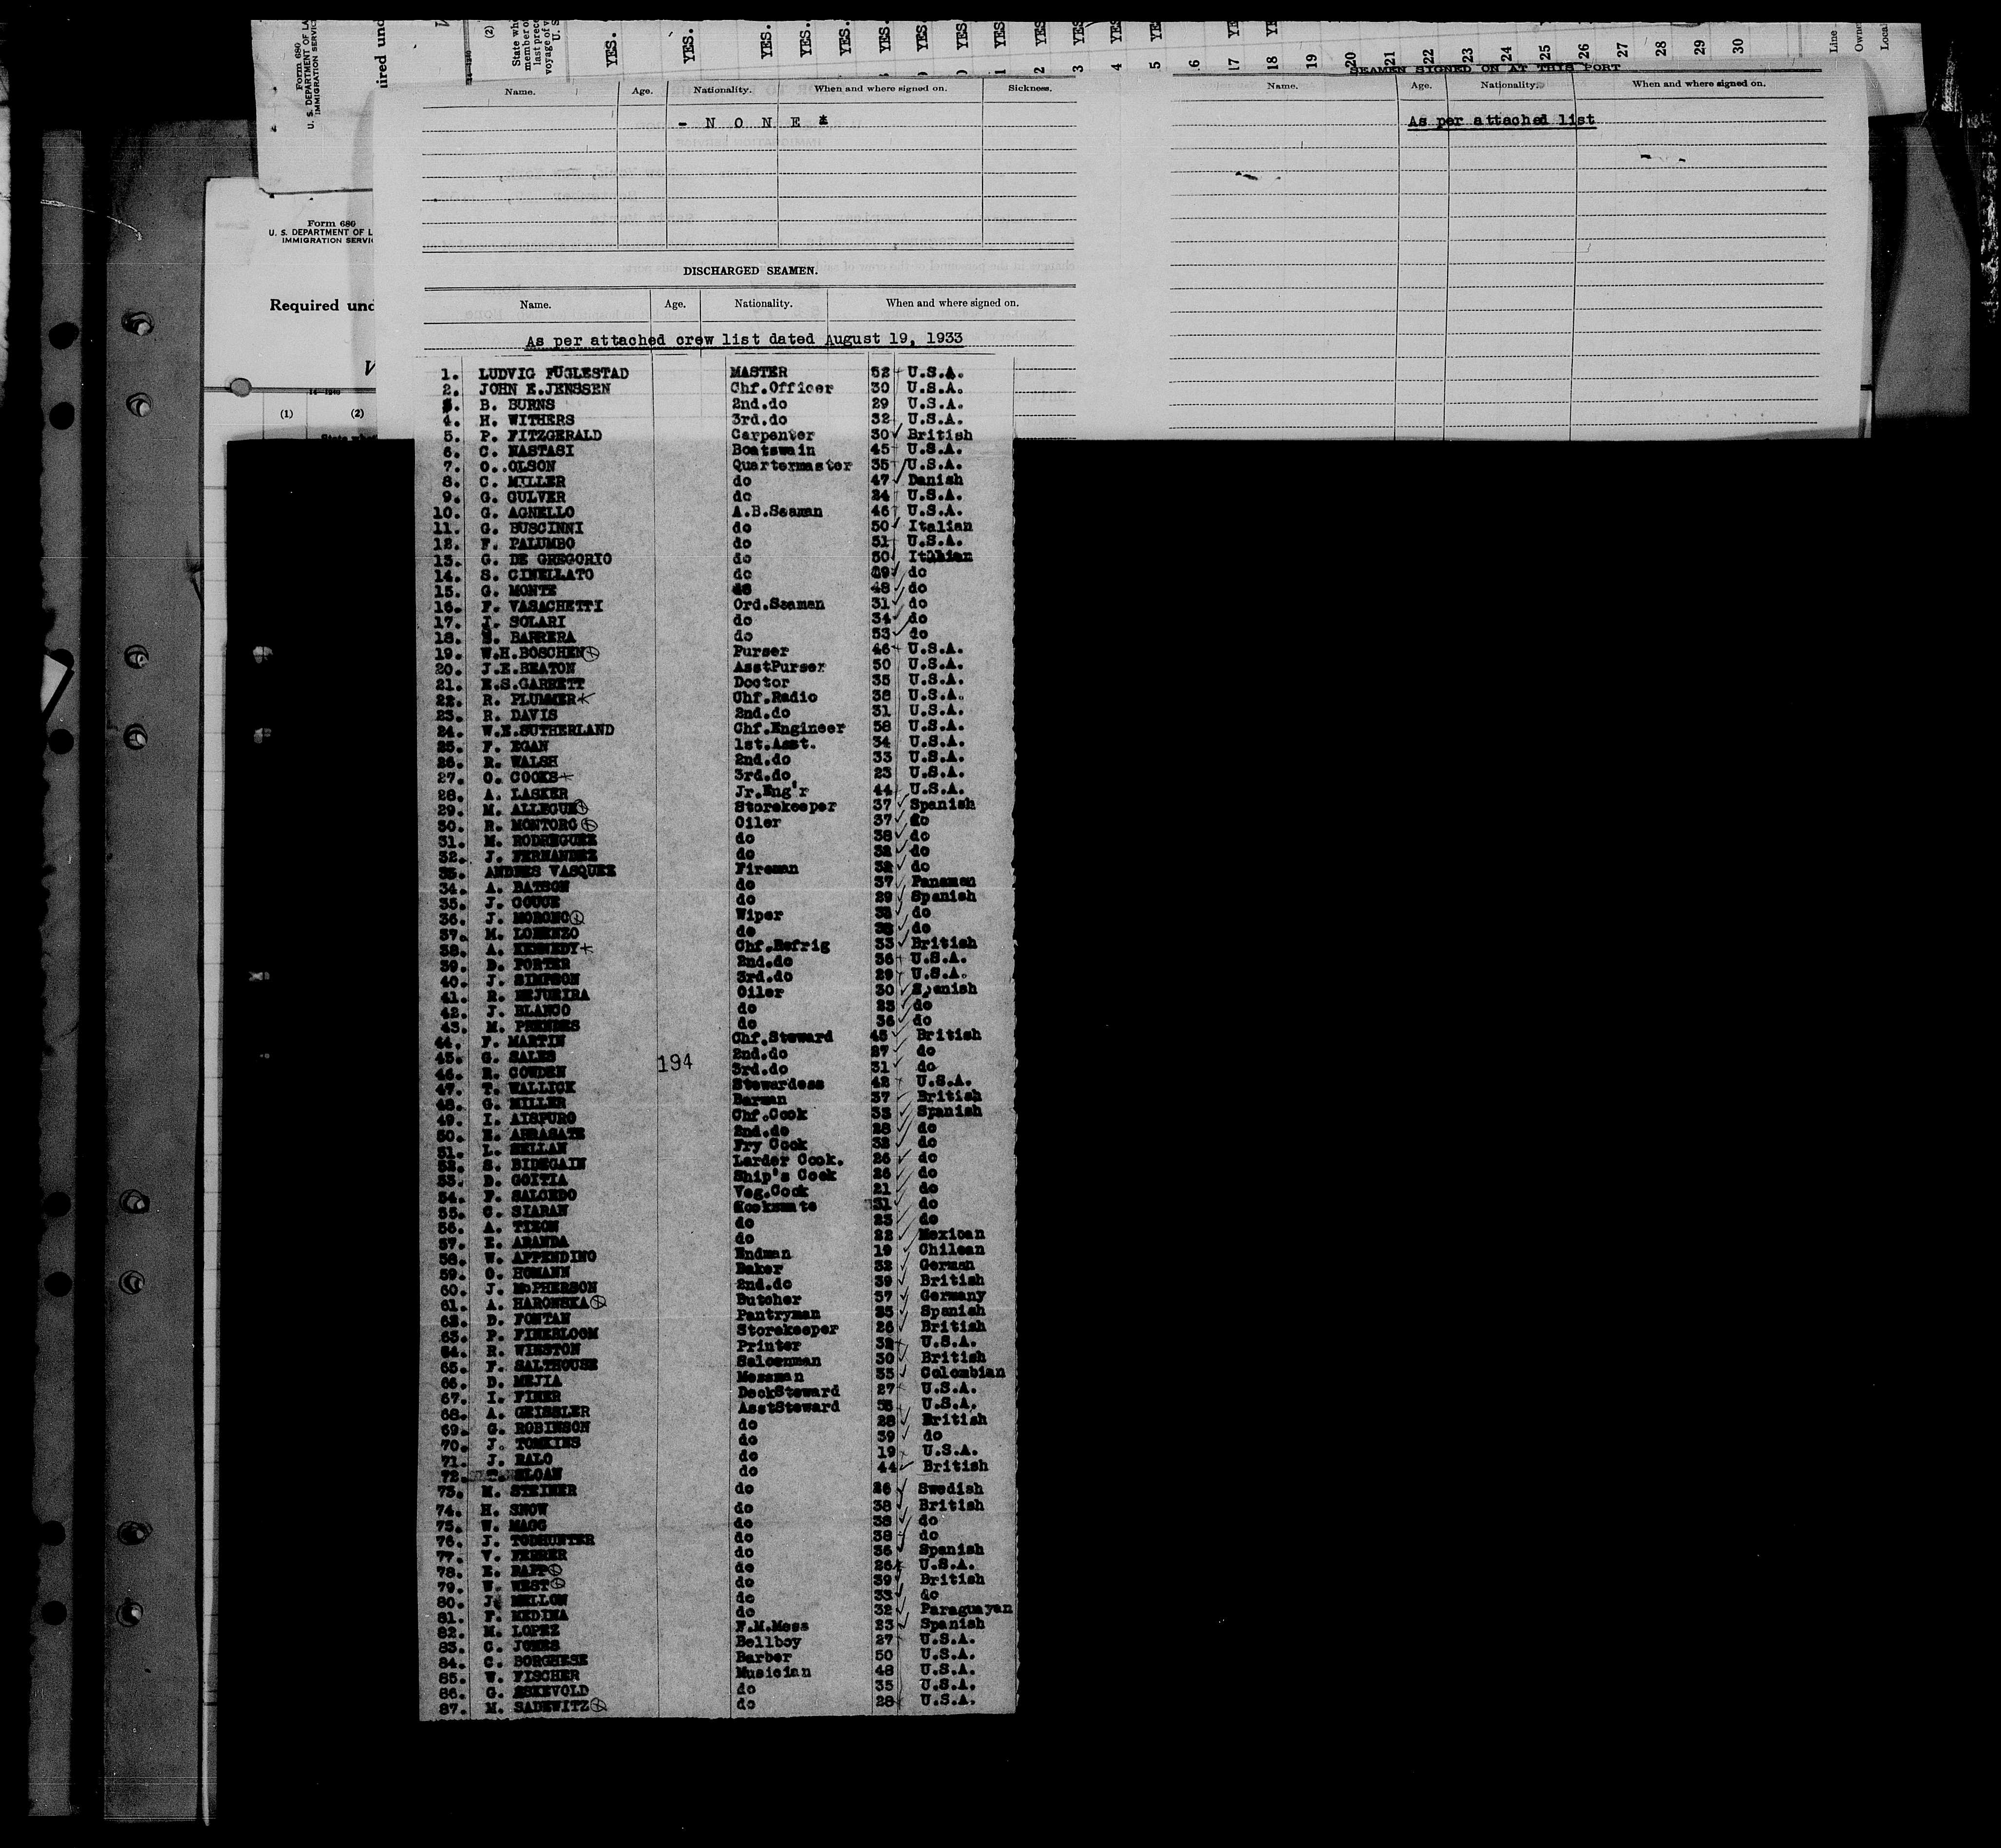 Form 680
U. S. DEPARTMENT OF LA
IMMIGRATION SERVIC
ired und
(2)
State wh
member of
last prece
voyage of v
U. S.
YES. YES. YES. YES. YES. YES. YES. YES. YES. YES. YES. YES.
1 2 3 4 5 16 17 18 19 20 21 22 23 24 25 26 27 28 29 30
Line
Owne
Local
Form 680
U. S. DEPARTMENT OF L
IMMIGRATION SERVIC
Required und
(1) (2)
Name. Age. Nationality. When and where signed on. Sickness.
- N O N E
DISCHARGED SEAMEN.
Name. Age. Nationality. When and where signed on.
As per attached crew list dated August 19, 1933
SEAMEN SIGNED ON AT THIS PORT
Name. Age. Nationality. When and where signed on.
As per attached list
1. LUDVIG FUGLESTAD MASTER 52 U.S.A.
2. JOHN E.JENSSEN Chf.Officer 30 U.S.A.
3. B. BURNS 2nd.do 29 U.S.A.
4. H. WITHERS 3rd.do 32 U.S.A.
5. P. FITZGERALD Carpenter 30 British
6. C. NASTASI Boatswain 45 U.S.A.
7. O. OLSON Quartermaster 35 U.S.A.
8. C. MILLER do 47 Danish
9. G. GULVER do 24 U.S.A.
10. G. AGNELLO A.B.Seaman 46 U.S.A.
11. G. BUSCINNI do 50 Italian
12. F. PALUMBO do 51 U.S.A.
13. G. DE GREGORIO do 50 Italian
14. S. CINELLATO do 49 do
15. G. MONTE do 48 do
16. F. VASACHETTI Ord.Seaman 31 do
17. I. SOLARI do 34 do
18. BARRERA do 53 do
19. W.H.BOSCHEN Purser 46 U.S.A.
20. J.E.BEATON AsstPurser 50 U.S.A.
21. E.S.GARRETT Doctor 35 U.S.A.
22. R. PLUMMER Chf.Radio 38 U.S.A.
23. R. DAVIS 2nd.do 31 U.S.A.
24. W.E.SUTHERLAND Chf.Engineer 58 U.S.A.
25. F. EGAN 1st.Asst. 34 U.S.A.
26. R. WALSH 2nd.do 33 U.S.A.
27. O. COOKS 3rd.do 23 U.S.A.
28. A. LASKER Jr.Eng'r 44 U.S.A.
29. M. ALLEGUE Storekeeper 37 Spanish
30. R. MONTORO Oiler 37 do
31. M. RODREGUEZ do 38 do
32. J. FERNANDEZ do 32 do
33. ANDRES VASQUEZ Fireman 32 do
34. A. BATSON do 37 Panaman
35. J. COUCE do 29 Spanish
36. J. MORONO Wiper 38 do
37. M. LORENZO do 38 do
38. A. KENNEDY Chf.Refrig 33 British
39. D. PORTER 2nd.do 36 U.S.A.
40. J. SIMPSON 3rd.do 29 U.S.A.
41. R. MEJUEIRA Oiler 30 Spanish
42. J. BLANCO do 23 do
43. M. PRENDES do 36 do
44. F. MARTIN Chf.Steward 45 British
45. G. SALES 2nd.do 27 do
194
46. R. COWDEN 3rd.do 31 do
47. T. WALLICK Stewardess 42 U.S.A.
48. G. MILLER Barman 37 British
49. I. AISPURO Chf.Cook 33 Spanish
50. E. ARRASATE 2nd.do 28 do
51. L. MELLAN Fry Cook 32 do
52. S. BIDEGAIN Larder Cook. 26 do
53. D. GOITIA Ship's Cook 26 do
54. F. SALCEDO Veg.Cook 21 do
55. C. SIARAN Kooksmate 31 do
56. A. TIZON do 23 do
57. E. ARANDA do 22 Mexican
58. W. APPENDINO Endman 19 Chilean
59. O. HOMANN Baker 32 German
60. J. McPHERSON 2nd.do 39 British
61. A. HAROWSKA Butcher 37 Germany
62. D. FONTAN Pantryman 25 Spanish
63. P. FINEBLOOM Storekeeper 26 British
64. R. WINSTON Printer 32 U.S.A.
65. F. SALTHOUSE Saloonman 30 British
66. D. MEJIA Messman 35 Colombian
67. I. FINER DeckSteward 27 U.S.A.
68. A. GEISSLER AsstSteward 58 U.S.A.
69. G. ROBINSON do 28 British
70. J. TOMKINS do 39 do
71. J. RALO do 19 U.S.A.
72. SLOAN do 44 British
73. M. STEINER do 26 Swedish
74. H. SNOW do 38 British
75. W. MAGG do 38 do
76. J. TODHUNTER do 38 do
77. V. FERRER do 36 Spanish
78. E. RAPP do 26 U.S.A.
79. W. WEST do 39 British
80. J. MELLON do 33 do
81. F. MEDINA do 32 Paraguayan
82. M. LOPEZ F.M.Mess 23 Spanish
83. C. JONES Bellboy 27 U.S.A.
84. C. BORGHESE Barber 50 U.S.A.
85. W. FISCHER Musician 48 U.S.A.
86. G. ESKEVOLD do 35 U.S.A.
87. M. SADEWITZ do 28 U.S.A.